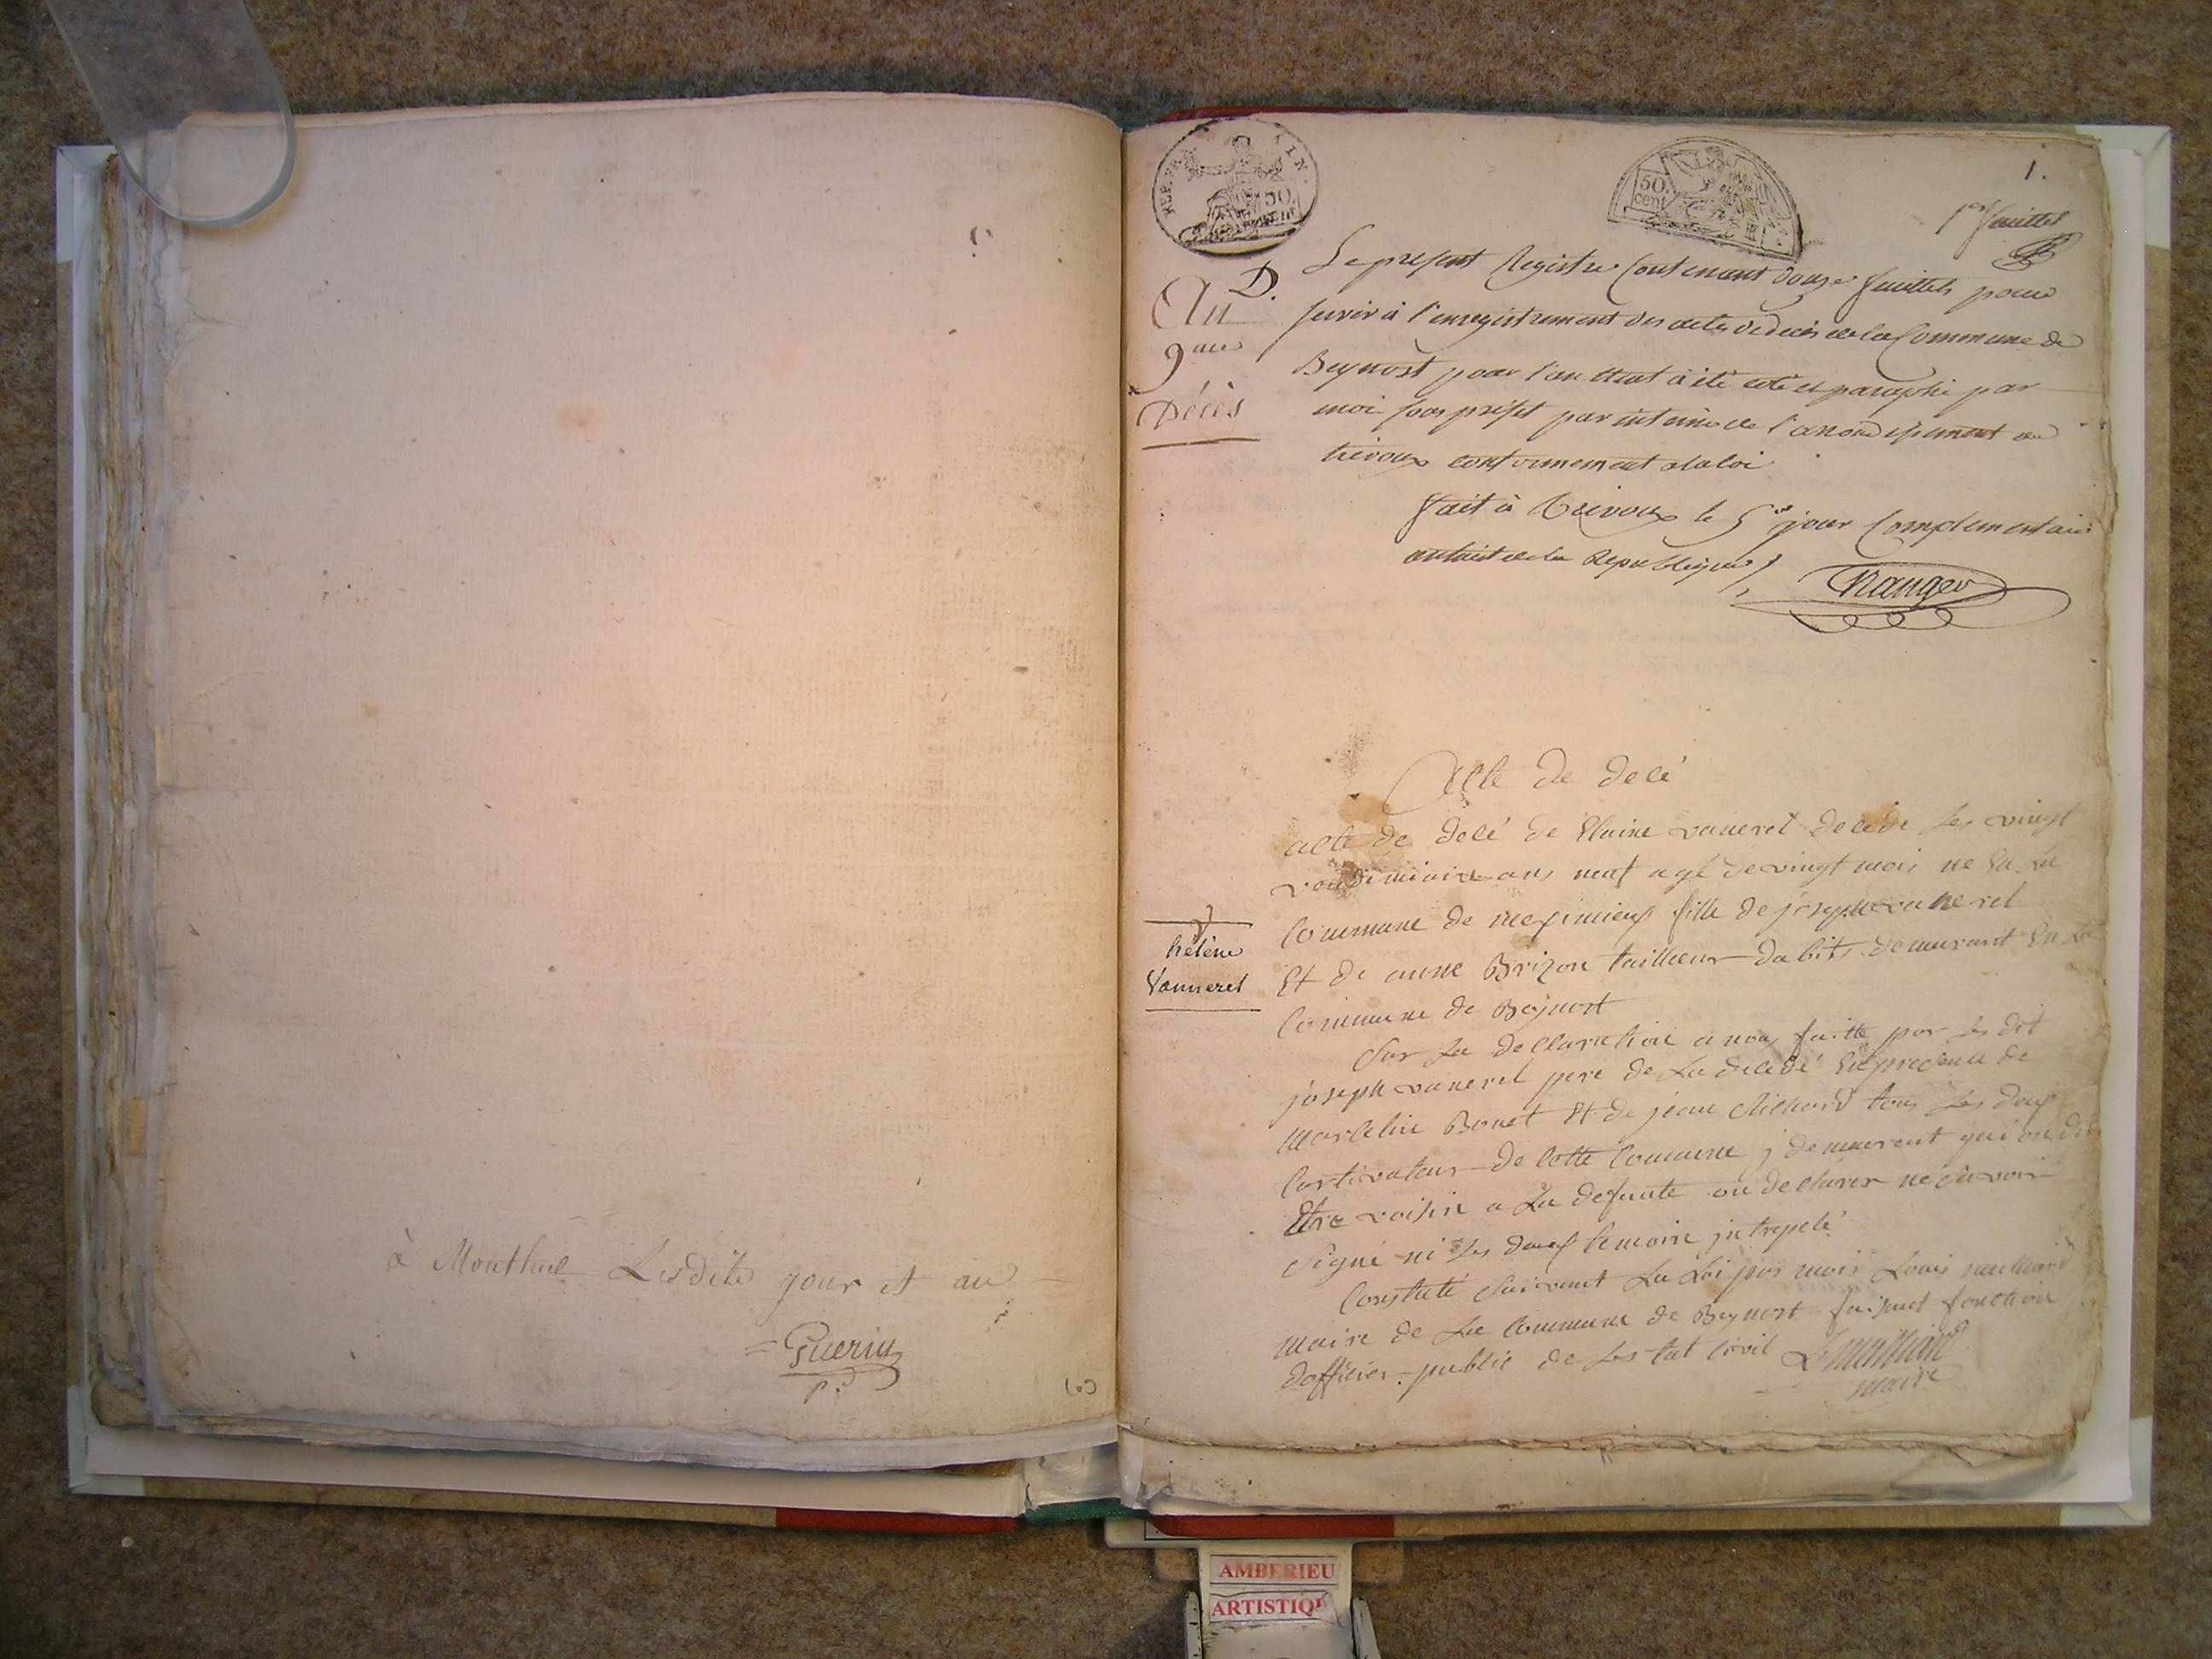 à Montluel Lesdits jour et an
Guerin
REP. FRA
50
1.
50.
cent
1er feuillet
D.
An
9me
Décès
Le present Registre Contenant douze feuillets pour
servir à l'enregistrement des actes de deces de la Commune de
Beynost pour l'an neuf à été coté et paraphé par
moi sous préfet par interim de l'arrondissement de
trevoux conformement a la loi
fait à Trevoux le 5e jour Complementaire
an huit de la Republique
acte de decé
acte de decé de Elaine vaneret decedé les vingt
vendeminire ans neuf agé de vingt mois ne En La
Commune de meximieux fille de joseph vaneret
Et de anne Brizon tailleur dabits demeurant En La
Commune de Beynost
hélène
Vanneret
Sur La declaration a nous faitte par Les dit
joseph vaneret pere de La decedé En presence de
marcelin Bonet Et de jean Richard tous Les deux
Cortivateur de Cette Commune j demeurent qui on dit
Etre voisin a La defunte on declarer ne savoir
signé ni Les deux temoin jntrepelé
Constaté suivant La Loi par mois Louis
maire de La Commune de Beynost faisant fonction
dofficier public de Les tat Civil
maire
AMBERIEU
ARTISTIQ